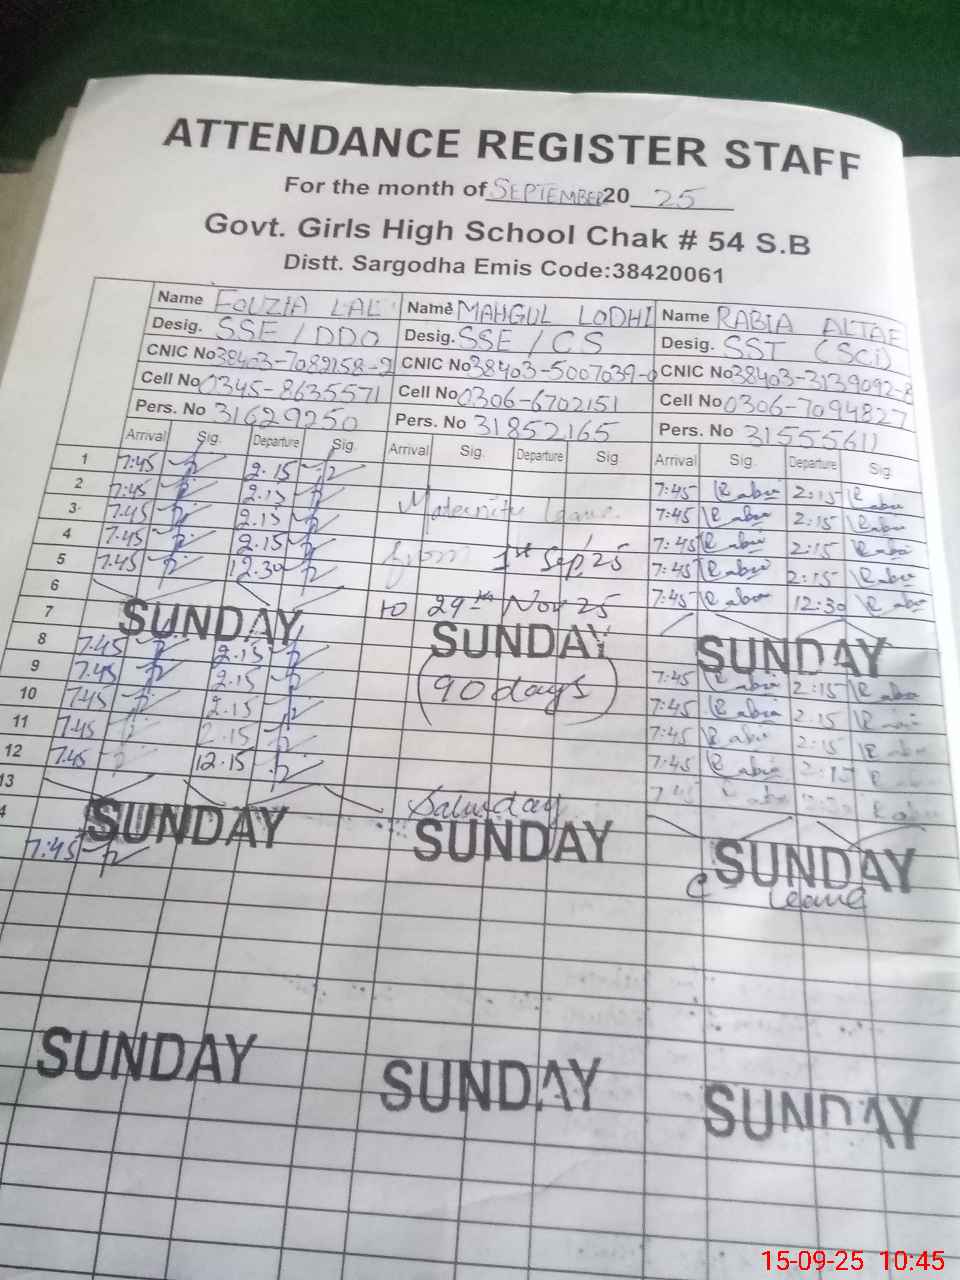 ATTENDANCE REGISTER STAFF
For the month of SEPTEMBER 20 25
Govt. Girls High School Chak # 54 S.B
Distt. Sargodha Emis Code:38420061
Name FOUZIA LAL Name MAHGUL LODHI Name RABIA ALTAF
Desig. SSE / DDO Desig. SSE / CS Desig. SST (Sci)
CNIC No 38403-7089158-2 CNIC No 38403-5007039-0 CNIC No 38403-3139092-8
Cell No 0345-8635571 Cell No 0306-6702151 Cell No 0306-7094827
Pers. No 31629250 Pers. No 31852165 Pers. No 31555611
Arrival Sig. Departure Sig. Arrival Sig. Departure Sig. Arrival Sig. Departure Sig.
1 7:45 2.15 7:45 Rabia 2:15 Rabia
2 7:45 2.15 Maternity leave 7:45 Rabia 2:15 Rabia
3 7:45 2.15 7:45 Rabia 2:15 Rabia
4 7:45 2.15 from 1st Sep, 25 7:45 Rabia 2:15 Rabia
5 7:45 12.30 7:45 Rabia 12:30 Rabia
6 to 29th Nov 25
7 SUNDAY SUNDAY SUNDAY
8 7:45 2.15 (90 days) 7:45 Rabia 2:15 Rabia
9 7:45 2.15 7:45 Rabia 2:15 Rabia
10 7:45 2.15 7:45 Rabia 2:15 Rabia
11 7:45 2.15 7:45 Rabia 2:15 Rabia
12 7:45 12.15 7:45 Rabia Rabia
13 Saturday
4 SUNDAY SUNDAY SUNDAY
7:45 C leave
SUNDAY SUNDAY SUNDAY
15-09-25 10:45